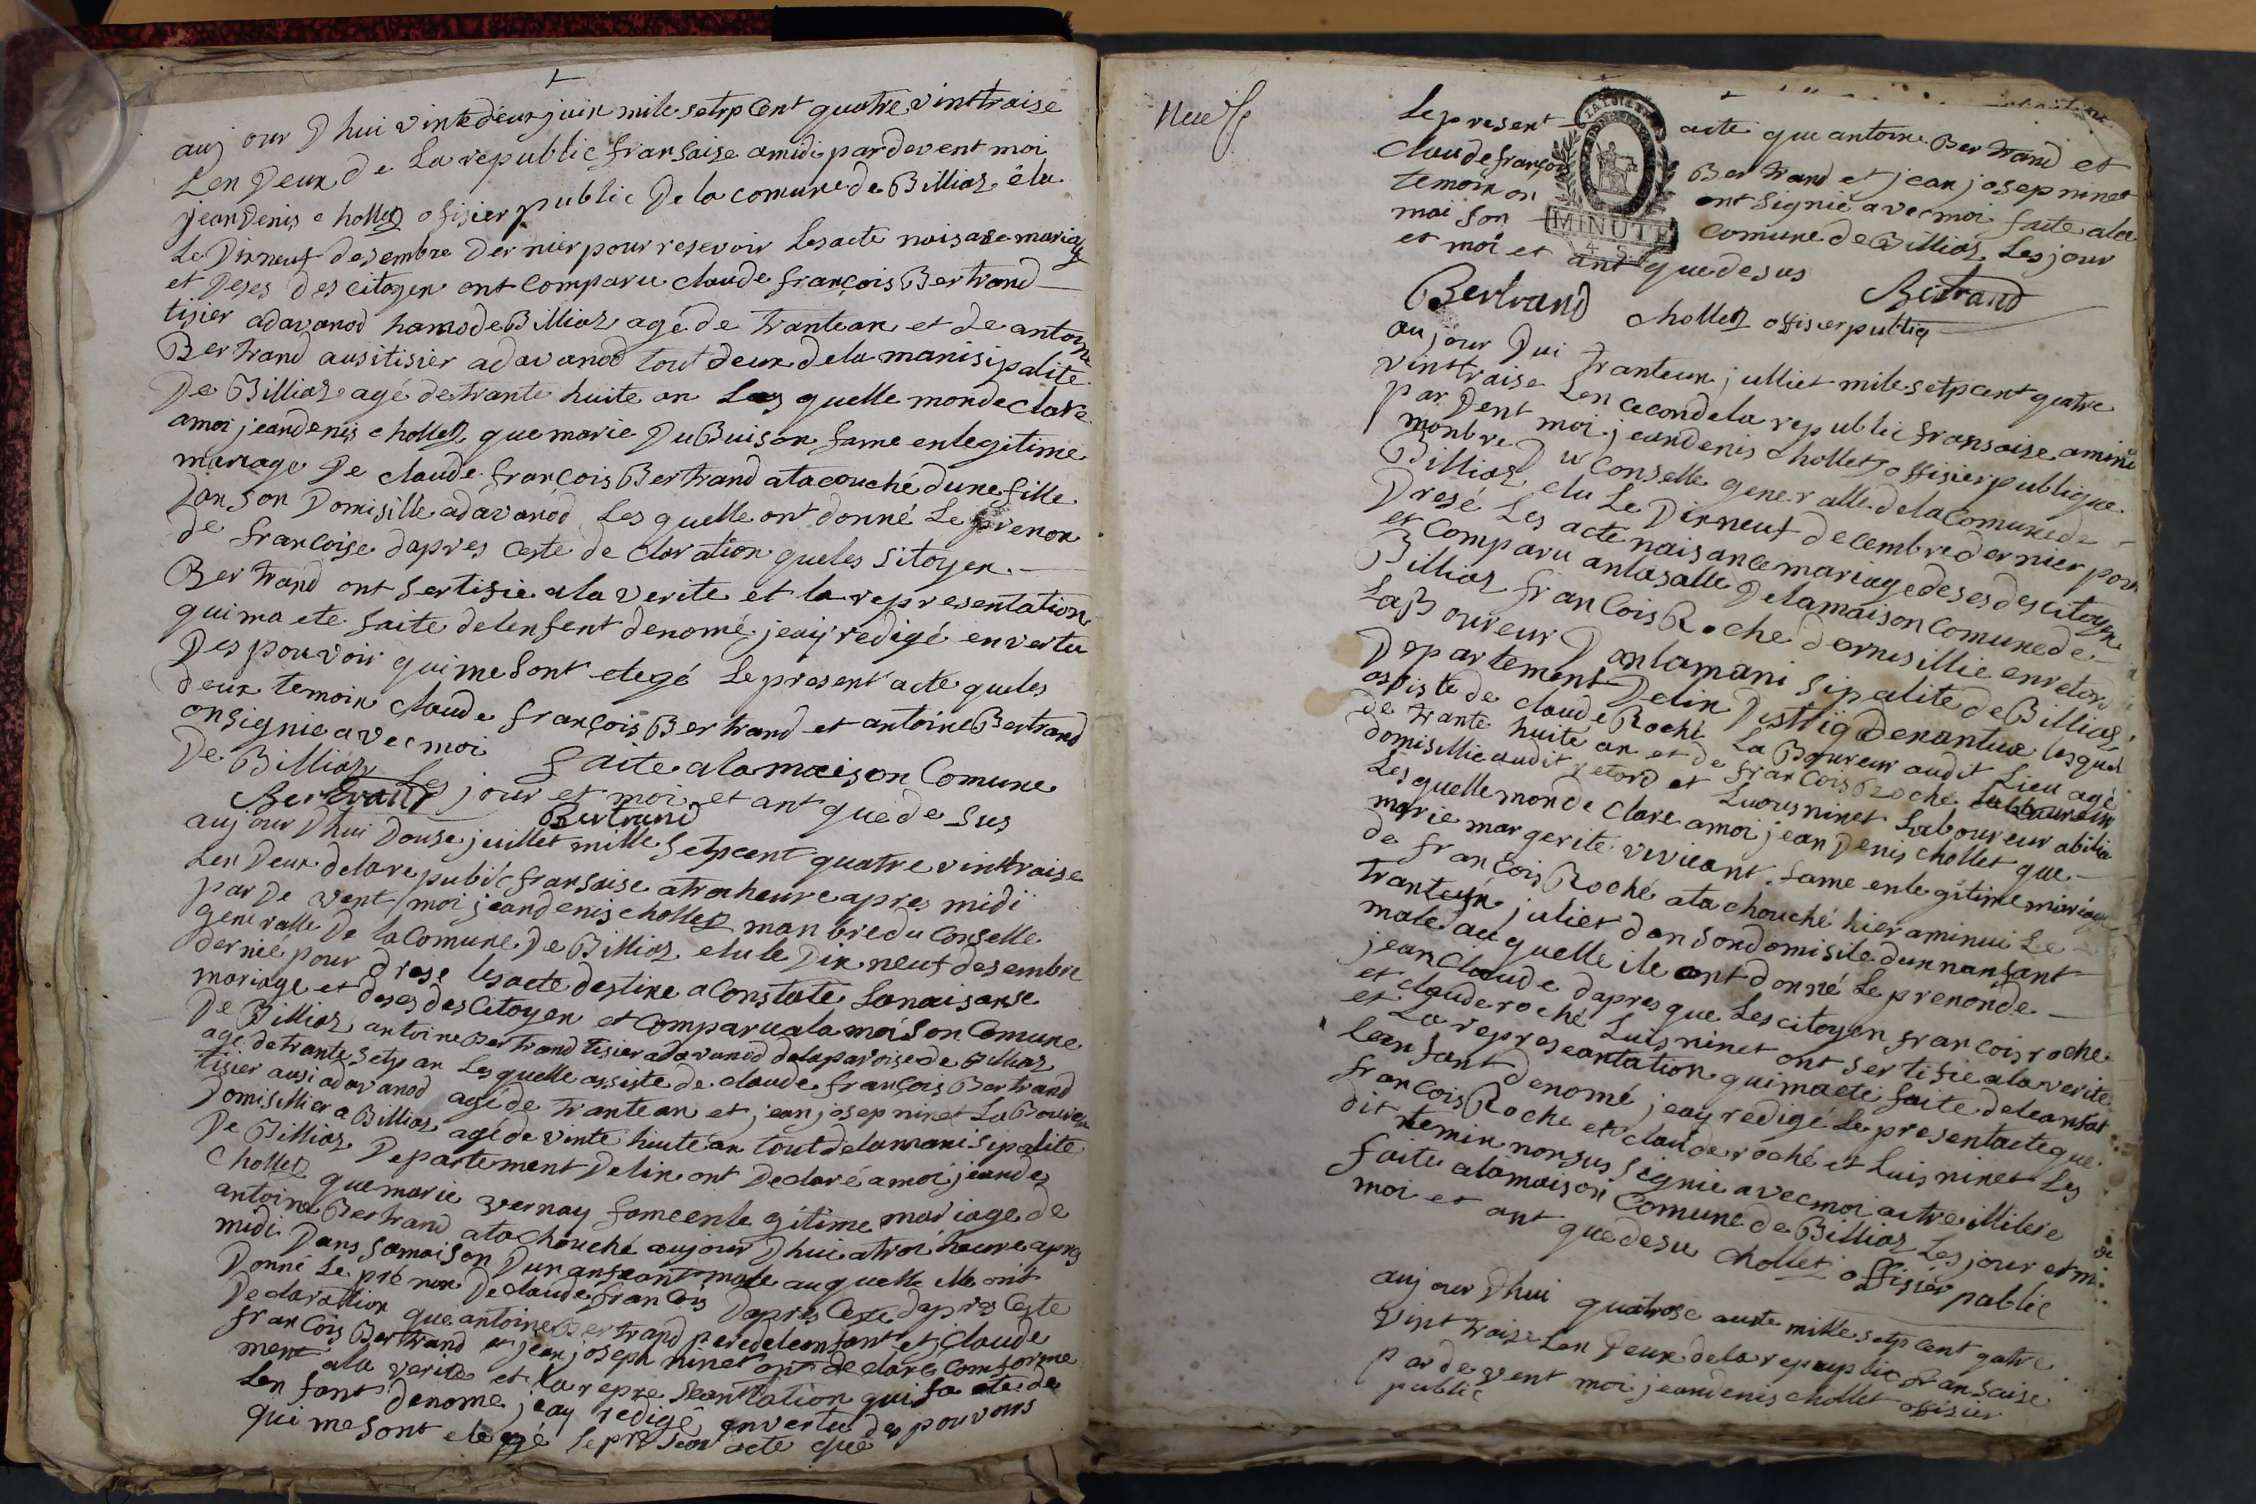 aujourDhui vintedeux juin mile setpcent quatre vinttraise
Len Deux de La republic fransaise amidi pardevent moi
jeandenis chollet ofisier public De la comune de Billiaz elu
Le Dixneuf desembre Dernier pour resevoir Lesacte naisase mariag
et Deses des citoyen ont comparu claude françois Bertrand
tisier adavanod hamo de Billiaz agé de trantean et de antoine
Bertrand ausitisier adavanod tout deux dela manisipalite
De Billiaz agé detrante huite an Les quelle mondeclare
amoi jeandenis chollet que marie DuBuison fame enlegitime
mariage De claude françois Bertrand atacouché dune fille
Dan son Domisille adavanod Les quelle ont donné Le prenon
de françoise dapres ceste declaration queles sitoyen
Bertrand ont sertifie ala verite et la representation
quima ete faite delenfent denomé jeaij redigé envertu
Des pouvoir qui me sont elegé Le present acte queles
deux temoin claude françois Bertrand et antoine Bertrand
onsignie avec moi faite ala maison Comune
De Billiaz Les jour et moi et ant que de sus
Bertrand Bertrand
aujourDhui Douse juillet mille setpcent quatre vinttraise
Len Deux delare pubic fransaise atroiheure apres midi
par De vent moi jeandenis chollet manbre du Conselle
generalle De la Comune De Billiaz elu le Dix neuf desembre
dernié pour drese lesacte destine a Constate La naisanse
mariage et deses des Citoyen et Comparu ala maison Comune
De Billiaz antoine Bertrand tisier adavanod delaparoise de Billiaz
agé detrante setp an Les quelle assiste de claude françois Bertrand
tisier ausi adavanod agé de trantean et jean josep ninet La Boureur
Domisillier a Billiaz agé de vinte huite an tout delamanisipalite
De Billiaz Departement Delin ont Declaré amoi jeandes
Chollet que marie vernay fame enle gitime mariage de
antoine Bertrand atachouché aujour Dhui atroi heure apres
midi Dans samaison Dun anfeant male auquelle ille ont
Donné Le prénon De claude françois Dapres Ceste dapres Ceste
Declaration que antoine Bertrand pere deleanfant et claude
françois Bertrand et jean joseph ninet ont declare comforme
ment ala verite et la repre seantation qui fa ete de
Len fant denome jeay redigé anvertu des pouvoirs
qui me sont elegé le present acte que
Neuf
Le present acte que antoine Bertrand et
claude françois Bertrand et jean josep ninet
temoin on ont signié avec moi faite ala
maison comune de Billiaz Les jour
et moi et ant que desus
MINUTE
Bertrand chollet offisier publiq Bertrand
aujour Dui tranteun julliet mile setpcent quatre
vinttraise Len cecon dela republic fransaise aminui
par Dent moi jeandenis chollet offisier publique
monbre Du Conselle generalle delacomune de
Billiaz elu Le Dixneuf decembre dernier pour
Dresé Les acte naisance mariage deses des citoyen
et Comparu anlasalle Delamaison comune de
Billiaz françois Roche domisillie enretord
LaBoureur Danlamanisipalite de Billiaz
Departement Delin Distriq denantua lesquel
assiste de claude Roché La Boureur audit Lieu agé
de trante huite an et de françois Roché Laboureur
domisillie audit retord et Luouis ninet Laboureur abilie
Les quelle monde Clare amoi jean Denis chollet que
marie margerite viviant fame enle gitime mariage
de françois Roché atachouché hier aminui Le
tranteun juliet dansondomisile dunnanfant
male auquelle ile ont donné Le prenon de
jean claude dapres que Les citoyen françois roche
et clauderoché Luis ninet ont sertifie ala verite
et La represeantation quimaete faite deleanfat
leanfant denomé jeay redigé Le presentacte que
françois Roche et claude roché et Luis ninet Les
dit temin nonsus signie avec moi autre illitere
faite ala maison Comune de Billiaz Les jour et m
moi et ant que desu chollet offisier public
aujourDhui quatrose auute mille setpcent gatre
vint traise Lan Deux dela repuplic fransaise
par devent moi jeandenis chollet offisier
public